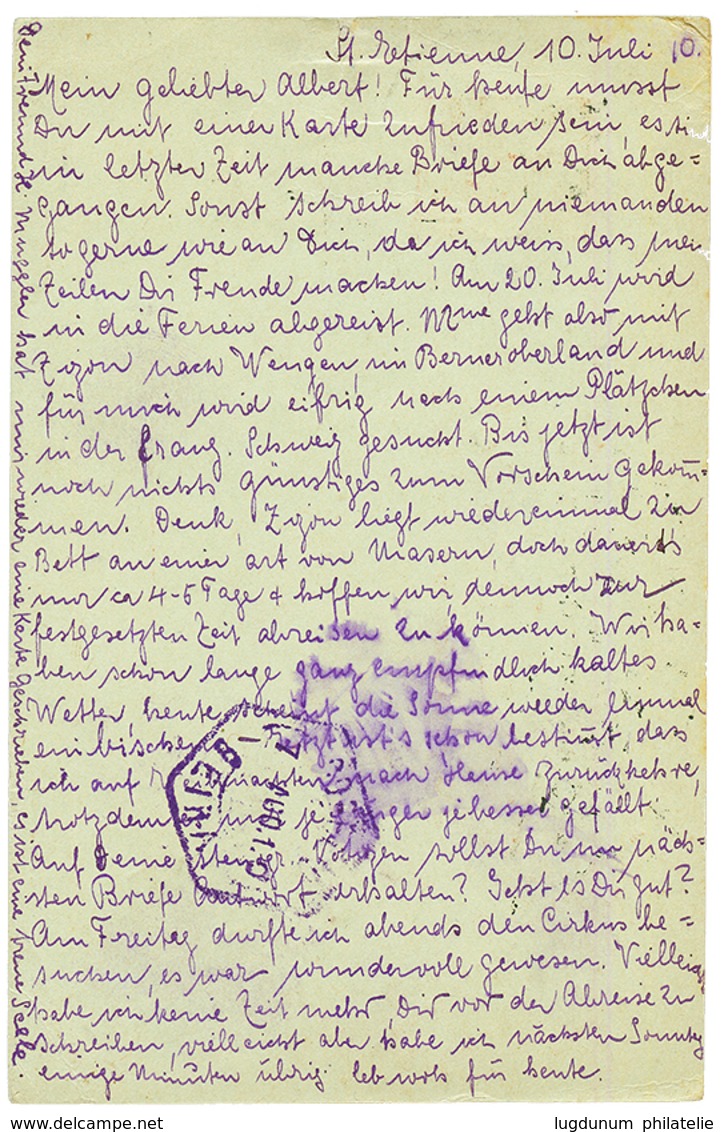 St. Etienne, 10. Juli 10.
Mein geliebter Albert! Für heute musst
Du mit einer Karte zufrieden sein, es si
in letzter Zeit manche Briefe an Dich abge=
gangen. Sonst schreib ich an niemanden
so gerne wie an Dich, da ich weiss, dass mei
Zeilen Dir Freude machen! Am 20. Juli wird
in die Ferien abgereist. Mme geht also mit
Zizon nach Wengen, im Berneroberland und
für mich wird eifrig nach einem Plätzchen
in der franz. Schweiz gesucht. Bis jetzt ist
noch nichts günstiges zum Vorschein gekom̄=
men. Denk, Zizon liegt wiedereinmal im
Bett an einer Art von Masern, doch dauerts
nur ca 4-5 Tage & hoffen wir, dennoch zur
festgesetzten Zeit abreisen zu können. Wir ha=
ben schon lange ganz empfindlich kaltes
Wetter, heute scheint die Sonne wieder einmal
ein bischen. Jetzt ist's schon bestimt, dass
ich auf nach Hause zurückkehre,
trotzdem je länger je besser gefällt.
Auf Deine stenogr. sollst Du im näch=
sten Briefe Antwort erhalten? Geht es Dir gut?
Am Freitag durfte ich abends den Cirkus be=
suchen, es war wundervoll gewesen. Vielleicht
habe ich keine Zeit mehr, Dir vor der Abreise zu
schreiben, vielleicht aber habe ich nächsten Sonntag
einige Minuten übrig. leb wohl für heute.
Dein Freund H. Muggler hat mir wieder eine Karte geschrieben, es ist eine treue Seele.
lugdunum philatelie